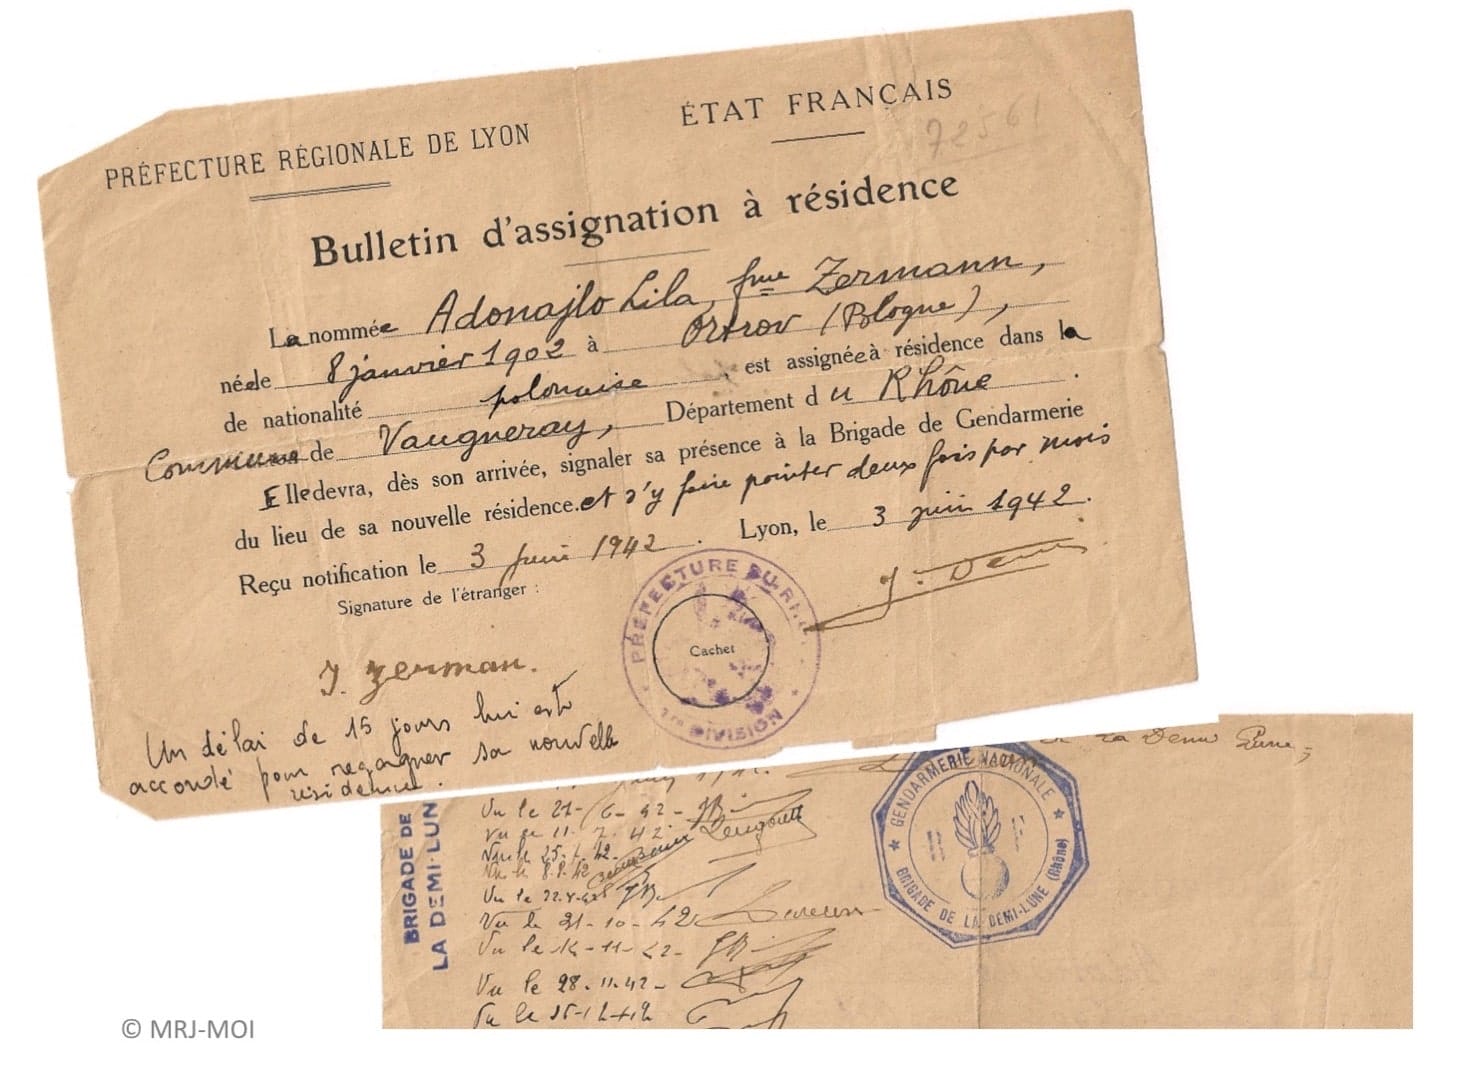 PRÉFECTURE RÉGIONALE DE LYON
ÉTAT FRANÇAIS
72561
Bulletin d'assignation à résidence
La nommée Adonajlo Lila, fme Zermann,
née le 8 janvier 1902 à Ostrov (Pologne),
de nationalité polonaise est assignée à résidence dans la
Commune de Vaugneray, Département du Rhône.
Elle devra, dès son arrivée, signaler sa présence à la Brigade de Gendarmerie
du lieu de sa nouvelle résidence. et s'y faire pointer deux fois par mois
Reçu notification le 3 Juin 1942. Lyon, le 3 juin 1942.
Signature de l'étranger :
PRÉFECTURE DU RH
Cachet
1re DIVISION
J. Zerman.
Un délai de 15 jours lui est
accordé pour regagner sa nouvelle
résidence.
de la Demi Lune,
BRIGADE DE
LA DEMI-LUN
Vu le 27-6-42-
Vu le 11.7.42
Vu le 25.7.42.
Vu le 8.8.42
Vu le 22.8.42
Vu le 31-10-42
Vu le 14-11-42-
Vu le 28.11.42-
GENDARMERIE NATIONALE
BRIGADE DE LA DEMI-LUNE (Rhône)
© MRJ-MOI